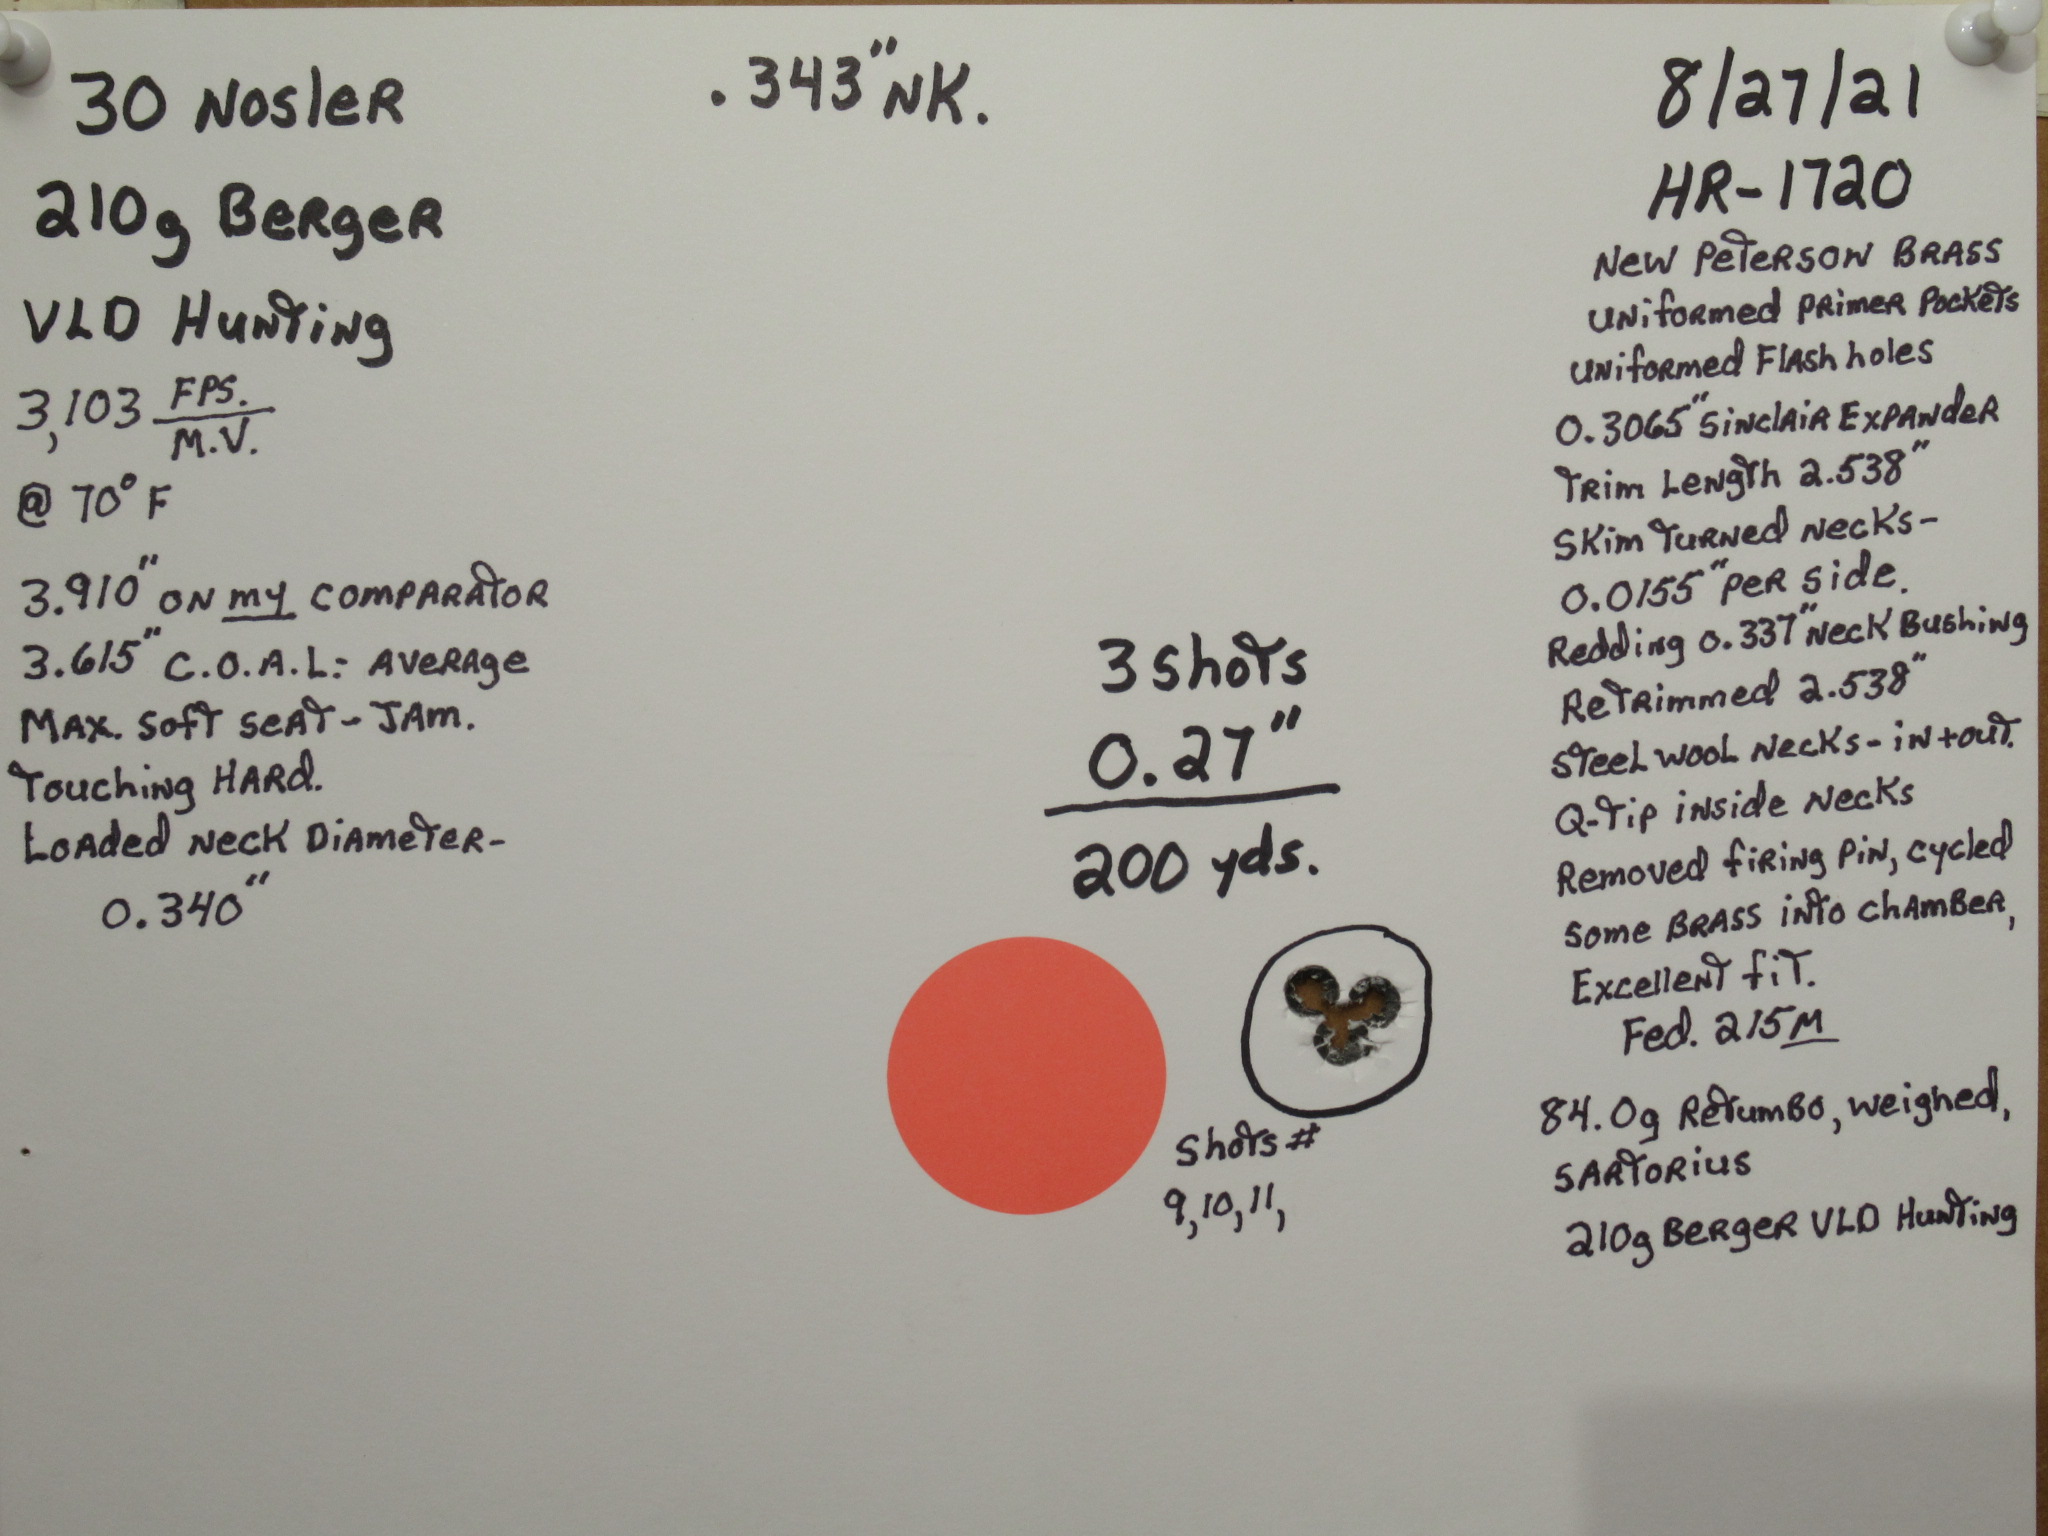 30 Nosler
210g Berger
VLD Hunting
3,103 FPS.
M.V.
@ 70° F
3.910" on my comparator
3.615" C.O.A.L.: Average
Max. soft seat - Jam.
Touching HARd.
Loaded Neck Diameter-
0.340"
.343" NK.
3 shots
0.27"
200 yds.
Shots #
9,10,11,
8/27/21
HR-1720
New Peterson Brass
Uniformed Primer Pockets
Uniformed Flash holes
0.3065" Sinclair Expander
Trim Length 2.538"
Skim Turned Necks-
0.0155" per side.
Redding 0.337" Neck Bushing
Retrimmed 2.538"
Steel wool Necks - in + out.
Q-Tip inside Necks
Removed firing pin, cycled
some Brass into chamber,
Excellent fit.
Fed. 215M
84.0g Retumbo, weighed,
Sartorius
210g Berger VLD Hunting